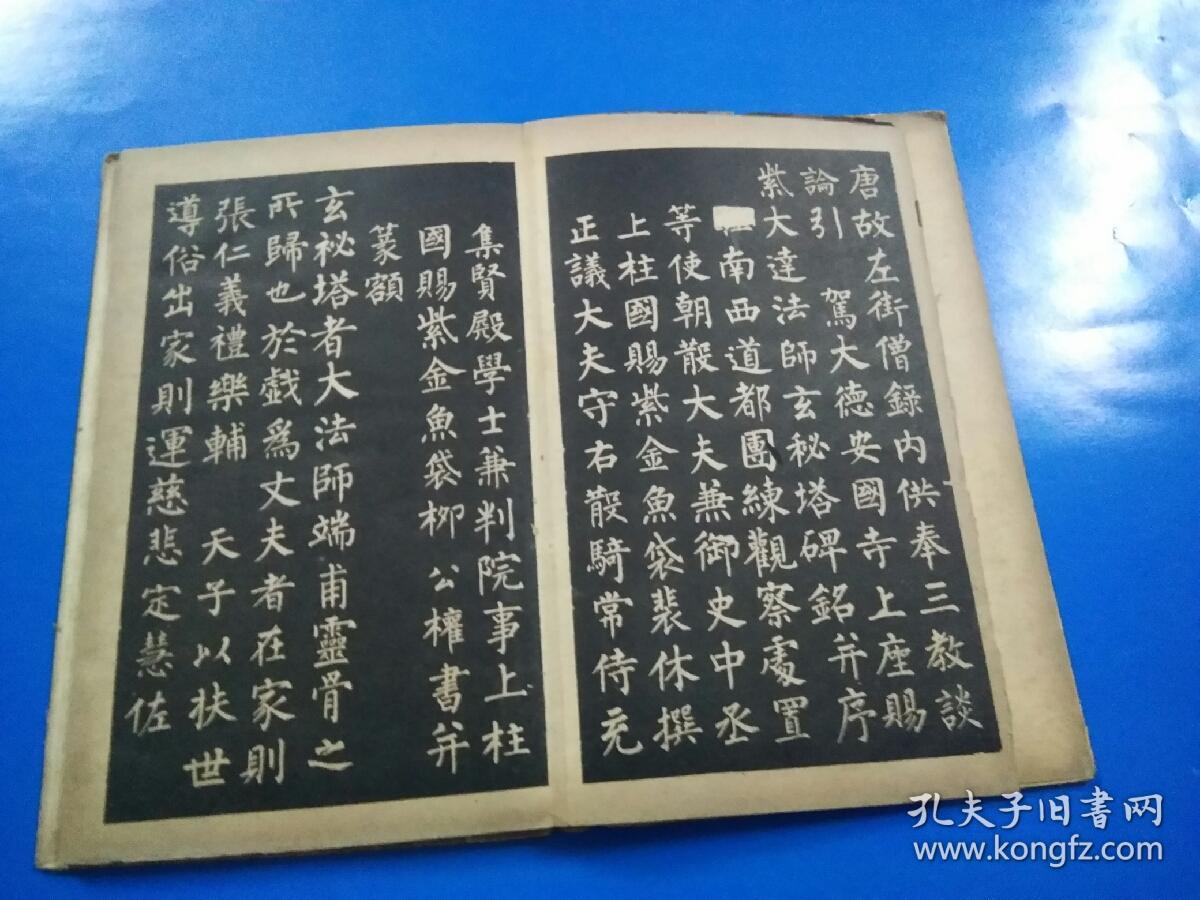 唐故左街僧錄內供奉三教談
論引　駕大德安國寺上座賜
紫大達法師玄秘塔碑銘并序
南西道都團練觀察處置
等使朝散大夫兼御史中丞
上柱國賜紫金魚袋裴休撰
正議大夫守右散騎常侍充
集賢殿學士兼判院事上柱
國賜紫金魚袋柳　公權書并
篆額
玄祕塔者大法師端甫靈骨之
所歸也於戲為丈夫者在家則
張仁義禮樂輔　天子以扶世
導俗出家則運慈悲定慧佐
孔夫子旧书网
www.kongfz.com